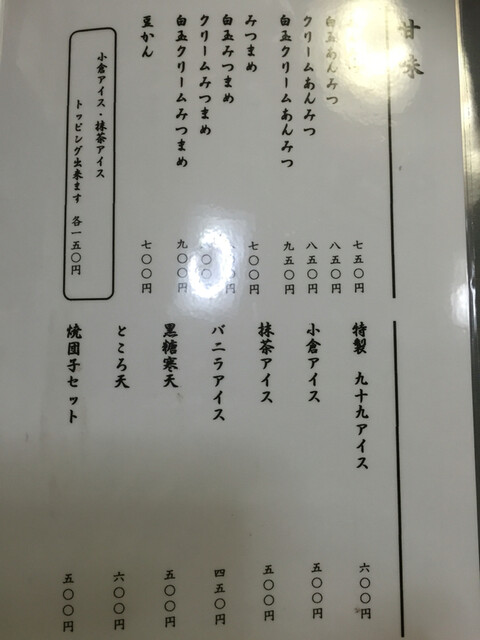 甘味
七五〇円
白玉あんみつ 八五〇円
クリームあんみつ 八五〇円
白玉クリームあんみつ 九五〇円
みつまめ 七〇〇円
白玉みつまめ
クリームみつまめ
白玉クリームみつまめ 九〇〇円
豆かん 七〇〇円
小倉アイス・抹茶アイス
トッピング出来ます 各一五〇円
特製 九十九アイス 六〇〇円
小倉アイス 五〇〇円
抹茶アイス 五〇〇円
バニラアイス 四五〇円
黒糖寒天 五〇〇円
ところ天 六〇〇円
焼団子セット 五〇〇円